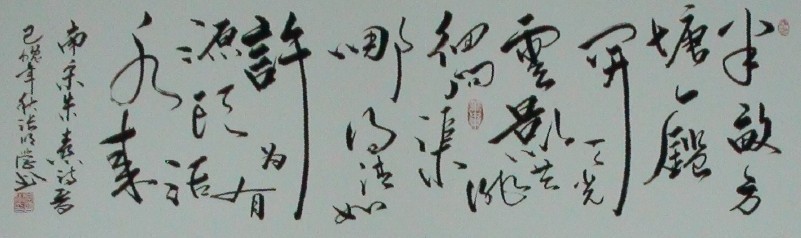 半畝方
塘一鑑
開天光
雲影共徘
徊問渠
哪得清如
許為有
源頭活
水來
南宋朱熹詩
年秋